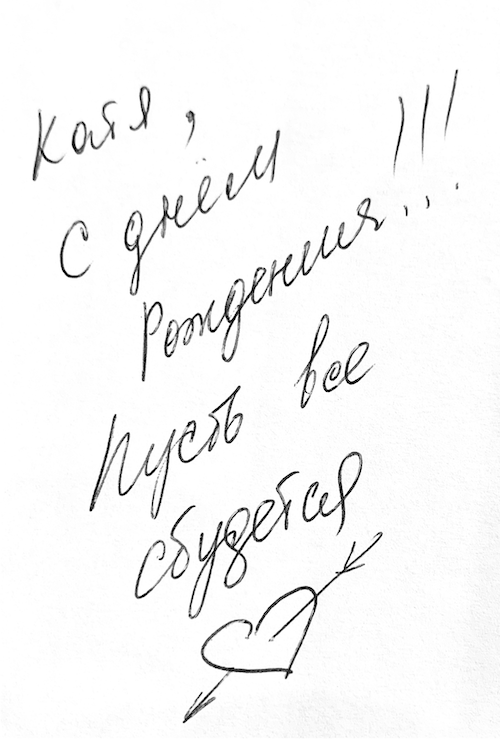 Катя,
с днём
Рождения!!!
Пусть все
сбудется